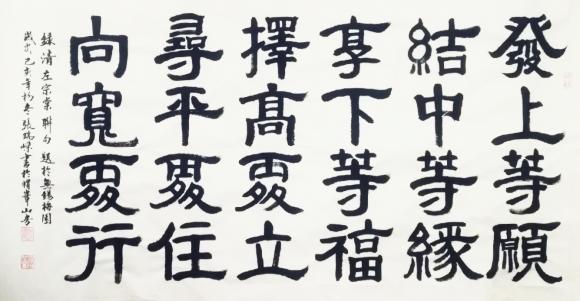 發上等願
結中等緣
享下等福
擇高處立
尋平處住
向寬處行
錄清左宗棠聯句題於無錫梅園
歲次己亥年初春張瑞峰書於山房